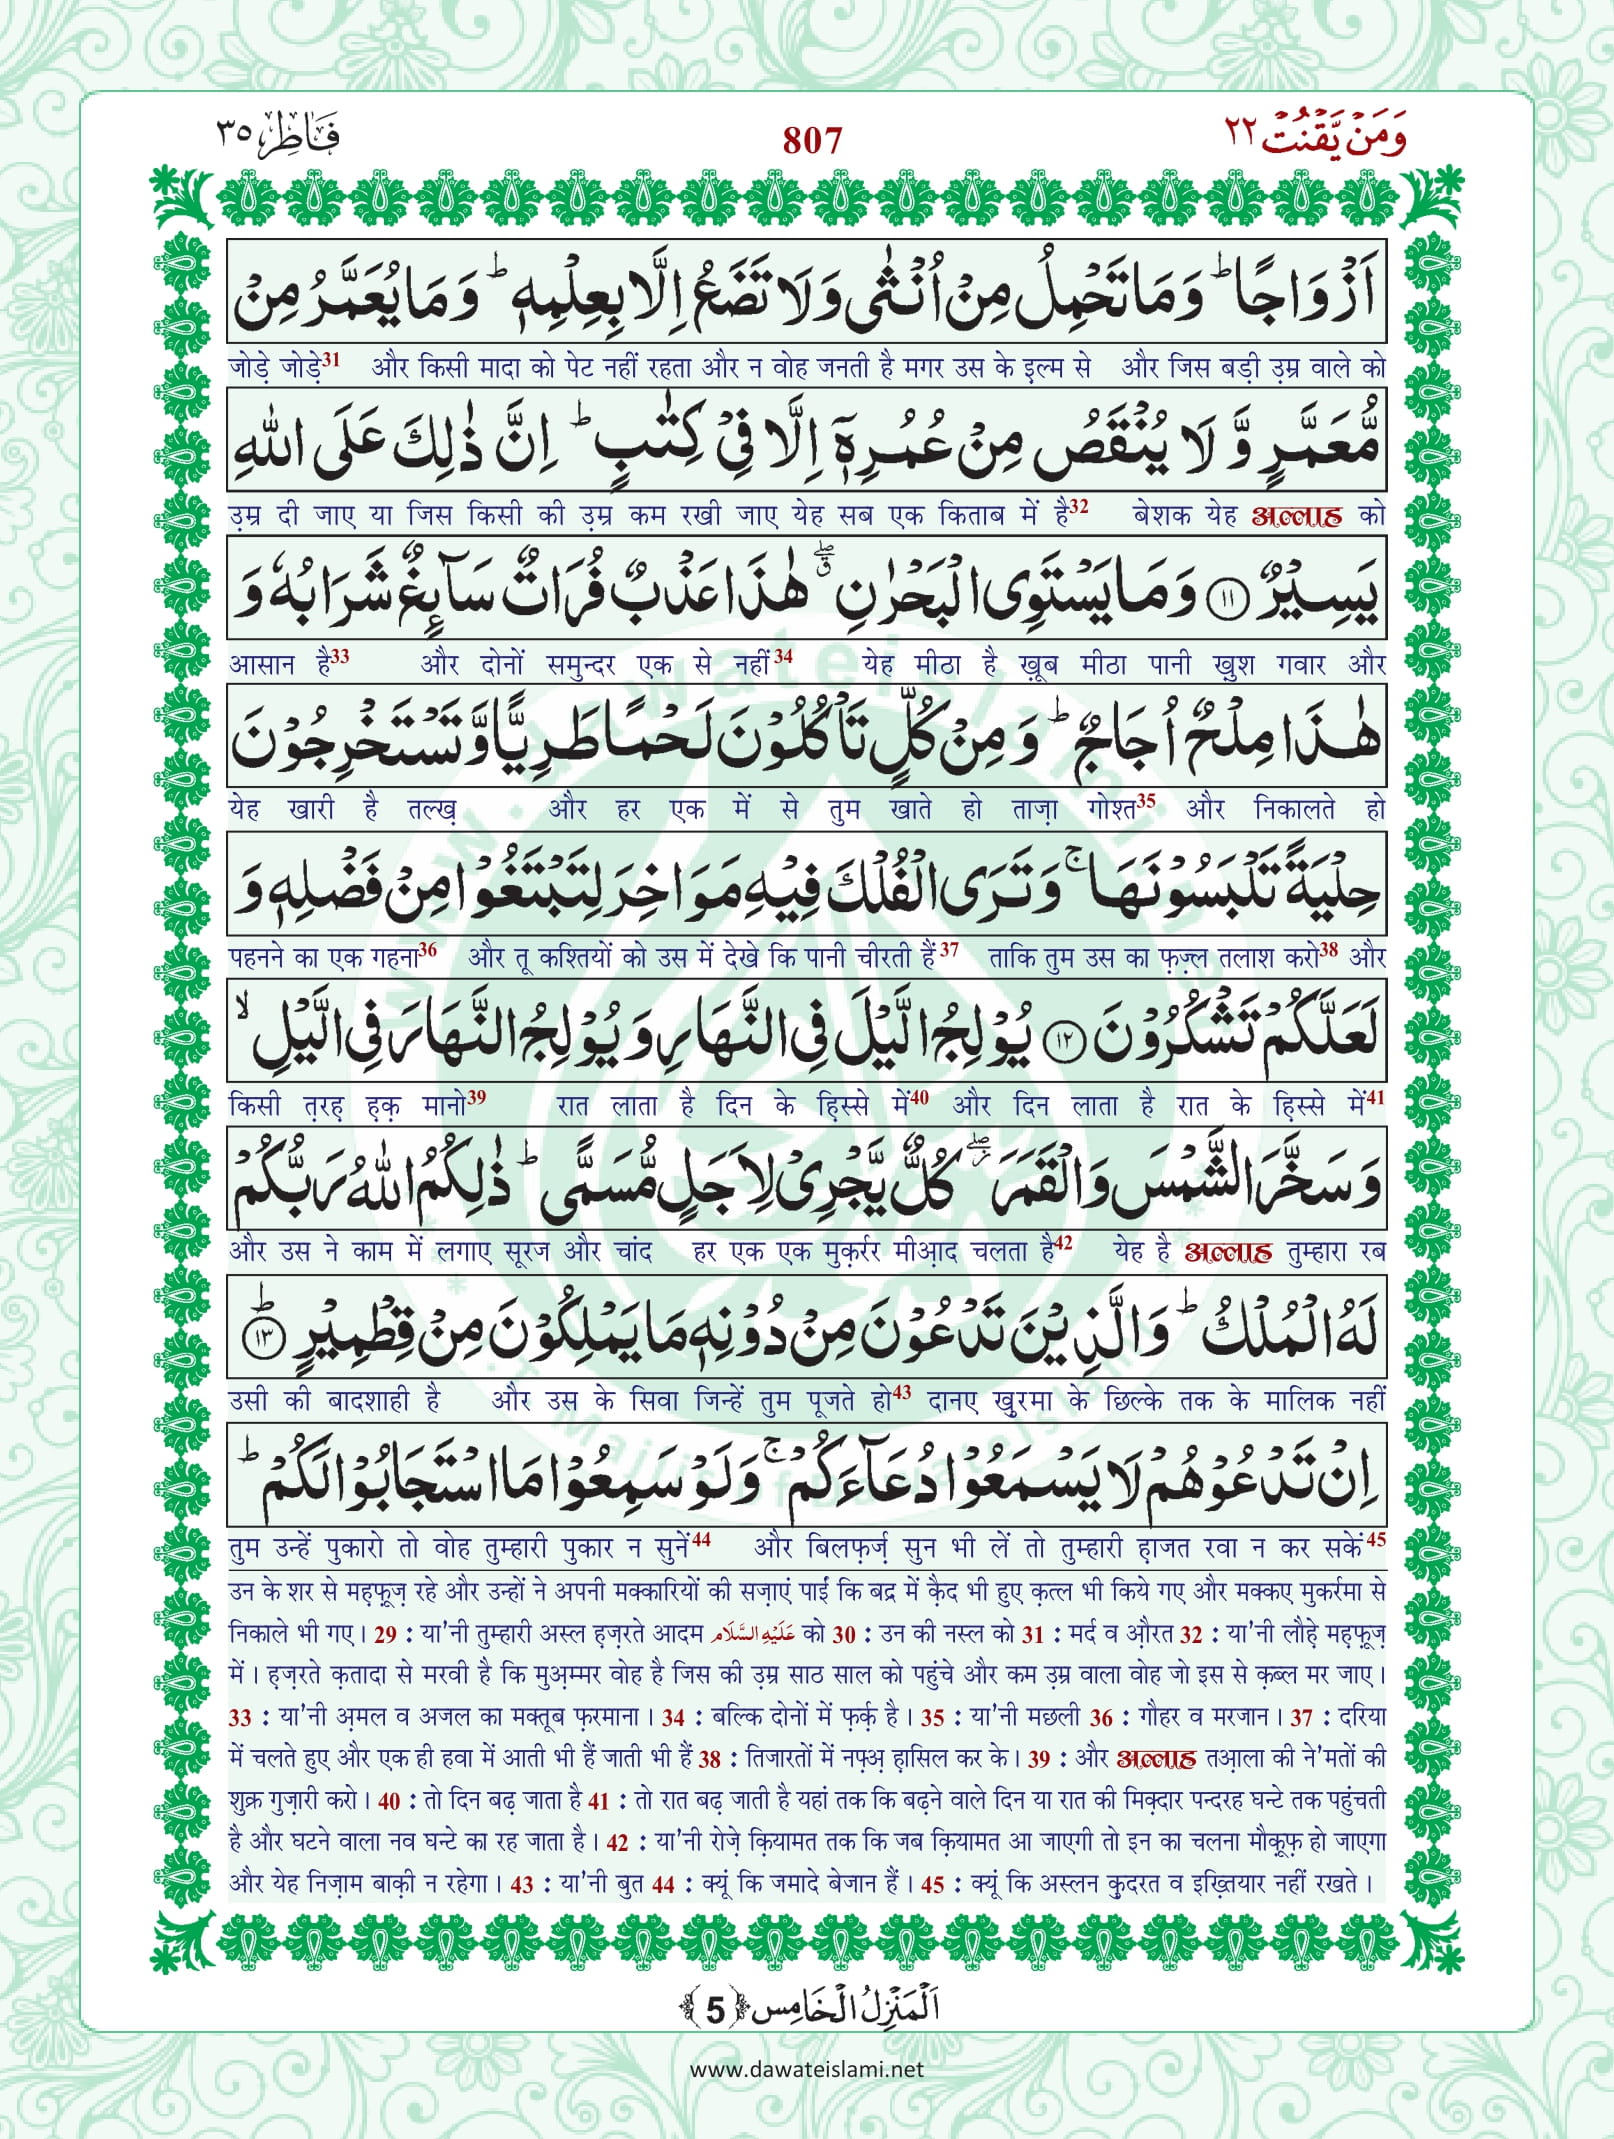 وَمَنْ يَّقْنُتْ ٢٢
807
فَاطِر ٣٥
اَزْوَاجًاؕ وَمَا تَحْمِلُ مِنْ اُنْثٰى وَلَا تَضَعُ اِلَّا بِعِلْمِهٖؕ وَمَا يُعَمَّرُ مِنْ
जोड़े जोड़े31 और किसी मादा को पेट नहीं रहता और न वोह जनती है मगर उस के इ़ल्म से और जिस बड़ी उ़म्र वाले को
مُّعَمَّرٍ وَّ لَا يُنْقَصُ مِنْ عُمُرِهٖۤ اِلَّا فِيْ كِتٰبٍؕ اِنَّ ذٰلِكَ عَلَى اللّٰهِ
उ़म्र दी जाए या जिस किसी की उ़म्र कम रखी जाए येह सब एक किताब में है32 बेशक येह अल्लाह को
يَسِيْرٌ ﴿١١﴾ وَمَا يَسْتَوِى الْبَحْرٰنِ ۖۗ هٰذَا عَذْبٌ فُرَاتٌ سَآىِٕغٌ شَرَابُهٗ وَ
आसान है33 और दोनों समुन्दर एक से नहीं34 येह मीठा है ख़ूब मीठा पानी खुश गवार और
هٰذَا مِلْحٌ اُجَاجٌؕ وَمِنْ كُلٍّ تَاْكُلُوْنَ لَحْمًا طَرِيًّا وَّ تَسْتَخْرِجُوْنَ
येह खारी है तल्ख़ और हर एक में से तुम खाते हो ताज़ा गोश्त35 और निकालते हो
حِلْيَةً تَلْبَسُوْنَهَاۚ وَتَرَى الْفُلْكَ فِيْهِ مَوَاخِرَ لِتَبْتَغُوْا مِنْ فَضْلِهٖ وَ
पहनने का एक गहना36 और तू कश्तियों को उस में देखे कि पानी चीरती हैं37 ताकि तुम उस का फ़ज़्ल तलाश करो38 और
لَعَلَّكُمْ تَشْكُرُوْنَ ﴿١٢﴾ يُوْلِجُ الَّيْلَ فِى النَّهَارِ وَ يُوْلِجُ النَّهَارَ فِى الَّيْلِۙ
किसी त़रह़ ह़क़ मानो39 रात लाता है दिन के ह़िस्से में40 और दिन लाता है रात के ह़िस्से में41
وَ سَخَّرَ الشَّمْسَ وَ الْقَمَرَ ۖؗ كُلٌّ يَّجْرِىْ لِاَجَلٍ مُّسَمًّىؕ ذٰلِكُمُ اللّٰهُ رَبُّكُمْ
और उस ने काम में लगाए सूरज और चांद हर एक एक मुक़र्रर मीआ़द चलता है42 येह है अल्लाह तुम्हारा रब
لَهُ الْمُلْكُؕ وَ الَّذِيْنَ تَدْعُوْنَ مِنْ دُوْنِهٖ مَا يَمْلِكُوْنَ مِنْ قِطْمِيْرٍؕ ﴿١٣﴾
उसी की बादशाही है और उस के सिवा जिन्हें तुम पूजते हो43 दानए खुरमा के छिल्के तक के मालिक नहीं
اِنْ تَدْعُوْهُمْ لَا يَسْمَعُوْا دُعَآءَكُمْۚ وَلَوْ سَمِعُوْا مَا اسْتَجَابُوْا لَكُمْؕ
तुम उन्हें पुकारो तो वोह तुम्हारी पुकार न सुनें44 और बिलफ़र्ज़ सुन भी लें तो तुम्हारी ह़ाजत रवा न कर सकें45
उन के शर से मह़फ़ूज़ रहे और उन्हों ने अपनी मक्कारियों की सज़ाएं पाईं कि बद्र में क़ैद भी हुए क़त्ल भी किये गए और मक्कए मुकर्रमा से
निकाले भी गए। 29 : या'नी तुम्हारी अस्ल ह़ज़रते आदम عَلَيْهِ السَّلَام को 30 : उन की नस्ल को 31 : मर्द व औ़रत 32 : या'नी लौह़े मह़फ़ूज़
में। ह़ज़रते क़तादा से मरवी है कि मुअ़म्मर वोह है जिस की उ़म्र साठ साल को पहुंचे और कम उ़म्र वाला वोह जो इस से क़ब्ल मर जाए।
33 : या'नी अ़मल व अजल का मक्तूब फ़रमाना। 34 : बल्कि दोनों में फ़र्क़ है। 35 : या'नी मछली 36 : गौहर व मरजान। 37 : दरिया
में चलते हुए और एक ही हवा में आती भी हैं जाती भी हैं 38 : तिजारतों में नफ़्अ़ ह़ासिल कर के। 39 : और अल्लाह तआ़ला की ने'मतों की
शुक्र गुज़ारी करो। 40 : तो दिन बढ़ जाता है 41 : तो रात बढ़ जाती है यहां तक कि बढ़ने वाले दिन या रात की मिक़्दार पन्दरह घन्टे तक पहुंचती
है और घटने वाला नव घन्टे का रह जाता है। 42 : या'नी रोज़े क़ियामत तक कि जब क़ियामत आ जाएगी तो इन का चलना मौक़ूफ़ हो जाएगा
और येह निज़ाम बाक़ी न रहेगा। 43 : या'नी बुत 44 : क्यूं कि जमादे बेजान हैं। 45 : क्यूं कि अस्लन क़ुदरत व इख़्तियार नहीं रखते।
اَلْمَنْزِلُ الْخَامِس ﴿5﴾
www.dawateislami.net